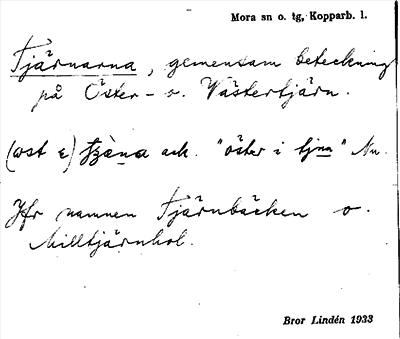 Mora sn o. tg, Kopparb. l.
Tjärnarna, gemensam beteckning
på Öster- o. Västertjärn.
(ost ε) ack. "öster i tjna" Nu.
Jfr namnen Tjärnbäcken o.
Milltjärnhol.
Bror Lindén 1933